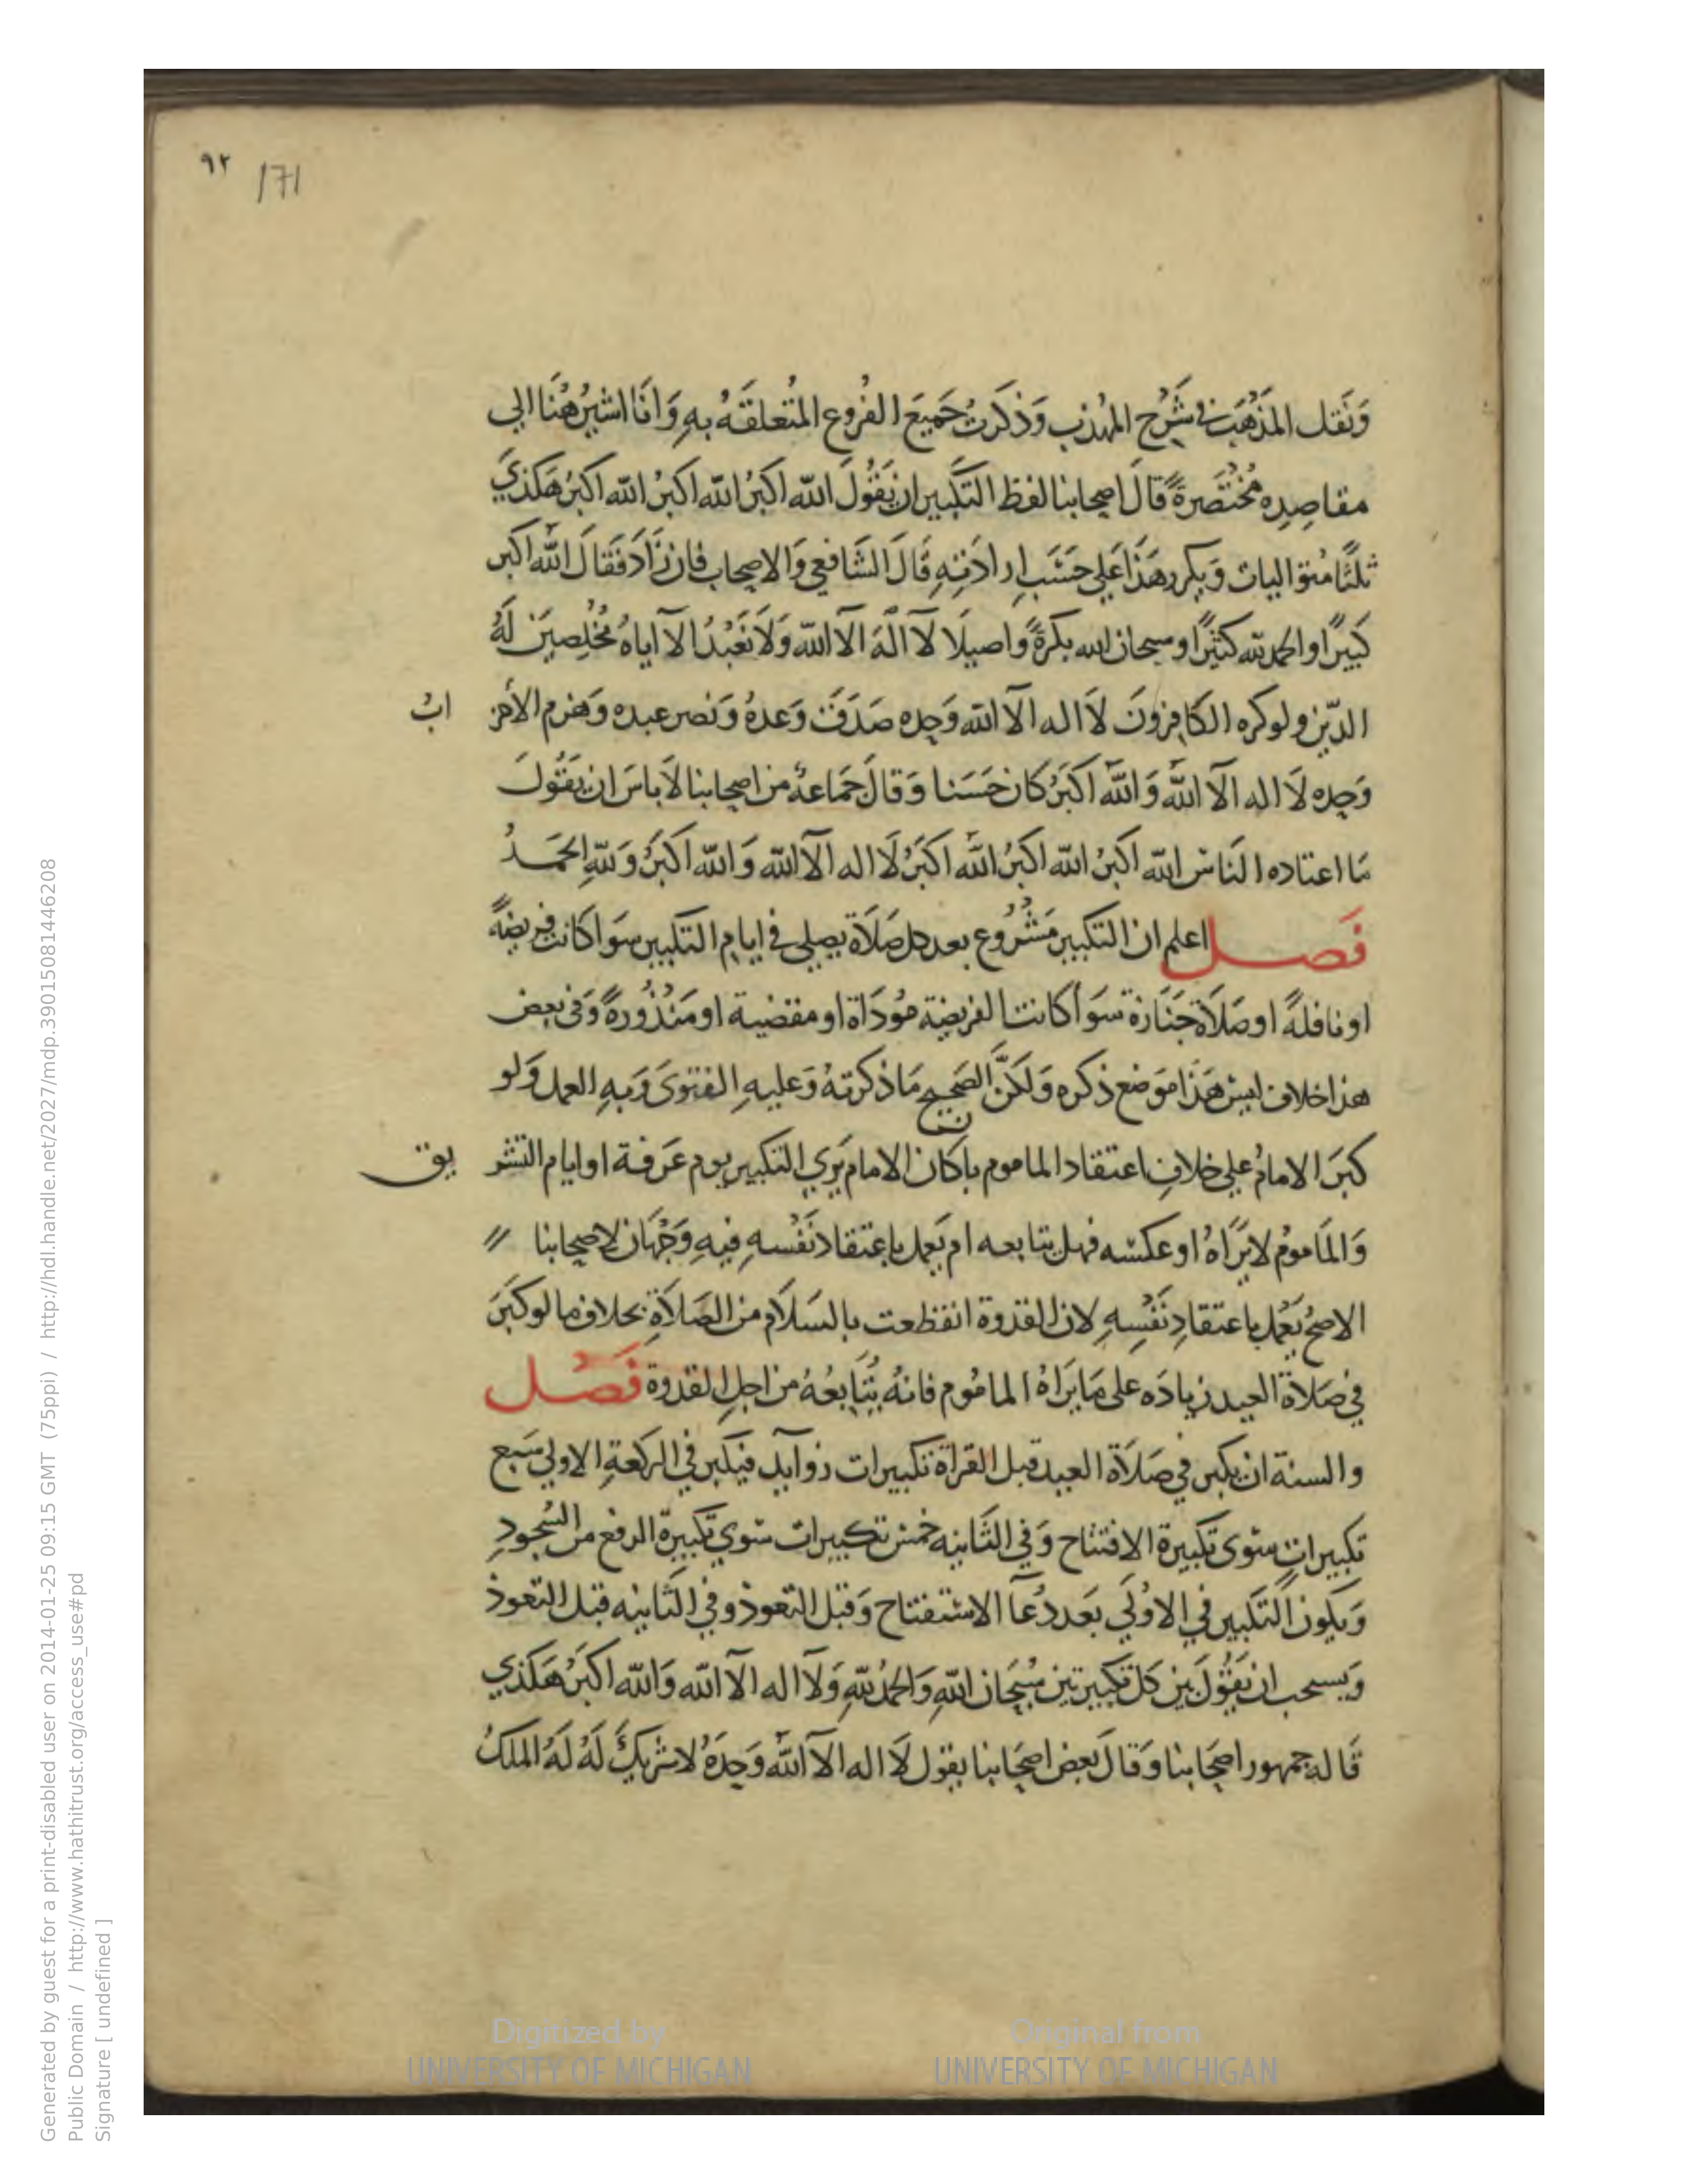 ٩٢ 171
وَنَقل المَذْهَب في شَرْح المهُذب وَذكَرتُ جَميَع الفُروع المتُعلقَةُ بهِ وَانَا اشيرُ هُنَا الي
مقاصِدِه مُخْتَصَرةً قَالَ اصحابنا لفظ التكبير ان يَقُولَ الله اكبَرُ الله اكبَرُ الله اكبَرُ هَكذيَ
ثلثًا مُتواليات وَيكرر هَذَا عَلي حَسَب ارادَتِهِ قَالَ الشَافعي وَالاصحاب فان زَادَ فَقَالَ الله اكبر
كَبيرًا والحمد لله كثيرًا وسبحان الله بكرةً واصيلًا لآ الَهَ الآ الله وَلاَ نَعْبدُ الآ اياهُ مُخْلِصين لَهُ
الدّين ولو كره الكَافِرونَ لآ اله الآ الله وَحده صَدَقَ وَعدهُ وَنصر عبده وَهزم الاحز ابُ
وَحده لَا اله الآ الله وَ الله اكبَرُ كان حَسَنا وَقالَ جَمَاعةٌ من اصحابنا لاَ باسَ ان يقُولَ
مَا اعتاده النَاس الله اكبرُ الله اكبرُ الله اكبَرُ لَا اله الآ الله وَ الله اكبَرُ وَلله الحَمدُ
فَصل اعلم ان التكبير مَشْرُوع بعد كل صَلَاة يصلي في ايام التكبير سوَا كانت فريضةً
او نافلةً او صَلَاة جَنَازة سَوَا كانت الفريضة مُودَاة او مقضية او مَنْذُورةً وَفي بعض
هذا خلاف ليسَ هَذَا موَضع ذكره وَلكنَّ الصَحيح مَا ذكرتهُ وَعليهِ الفتوىَ وَبهِ العمل وَلو
كبرَ الامامُ علي خلافِ اعتقاد الماموم بان كان الامام يَرَي التكبير يوم عَرَفة او ايام التشر يق
وَالمَامومُ لا يَرَاهُ او عكسه فهل يتابعه ام يَعمل باعتقاد نَفْسهِ فيهِ وَجْهَان لاصحابنا
الاصحُ يَعْمل باعتقادِ نَفْسِهِ لان القدوة انقطعت بالسَلَام من الصَلَاةِ بخلاف ما لو كبَرَ
في صَلَاة العيد زيادَه على مَا يَرَاهُ المامُوم فانهُ يُتَابعُهُ من اجل القدوة فَصْل
والسنة ان يكبر في صَلَاة العيد قبل القراة تكبيرات زوآيد فيكبر في الركعةِ الاولي سَبع
تكبيراتٍ سِوى تكبيرة الافتتاح وَفي الثَانيه خمسَ تكبيرات سوي تكبيرة الرفع من السُجودِ
وَيكون التكبير في الاوُلَي بَعد دُعآ الاستفتاح وَقبل التعوذ وفي الثانيه قبل التعوذ
وَيستحب ان يَقُولَ بَين كل تكبيرتين سُبحَان اللهِ وَالحَمدُ للهِ وَلآ اله الآ الله وَالله اكبَرُ هَكذي
قَاله جمهور اصحَابنا وَقالَ بعض اصحَابنا يقول لآ اله الآ الله وَحدَهُ لا شَرْيكَ لَهُ لَهُ الملكُ
Generated by guest for a print-disabled user on 2014-01-25 09:15 GMT (75ppi) / http://hdl.handle.net/2027/mdp.39015081446208
Public Domain / http://www.hathitrust.org/access_use#pd
Signature [ undefined ]
Digitized by UNIVERSITY OF MICHIGAN
Original from UNIVERSITY OF MICHIGAN